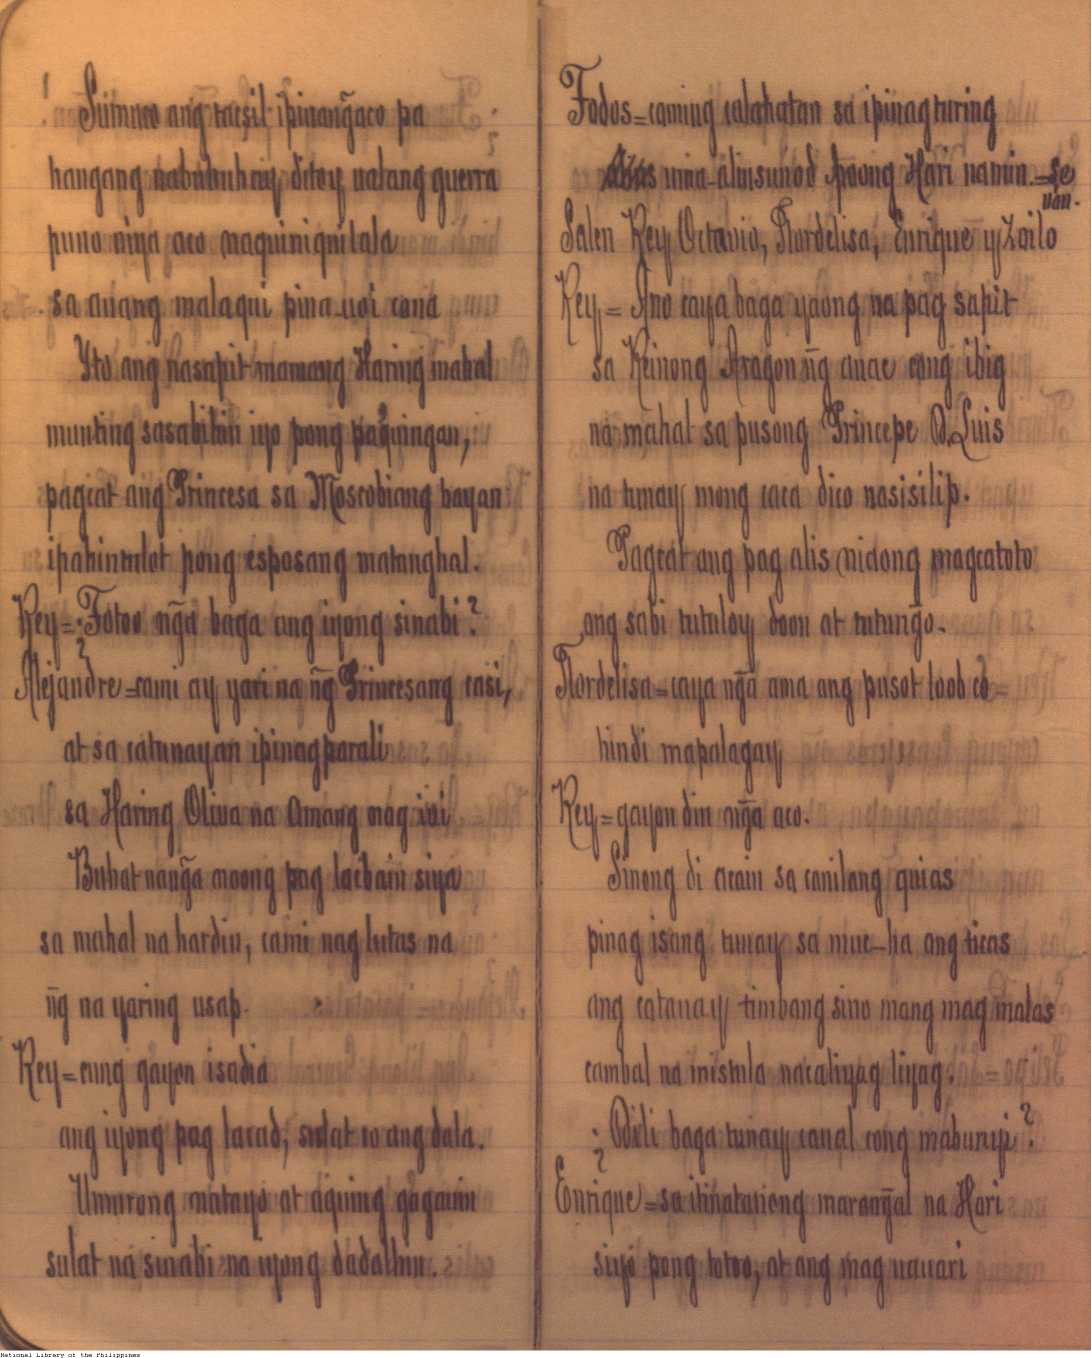 Sumuco ang tacsil ipinangaco pa
hangang nabubuhay ditoy ualang guerra
puno niya aco naquiniquilala
sa auang malaqui pina-uoi cona
Yto ang nasapit mamang Haring mahal
munting sasabihin iyo pong paquingan,
pagcat ang Princesa sa Moscobiang bayan
ipahintulot pong esposang matanghal.
Rey=¿Totoo ng̃a baga ang iyong sinabi?
Alejandre=cami ay yari na ñg Princesang casi,
at sa catunayan ipinagparali
sa Haring Oliva na Amang nag iui
Buhat nang̃a moong pag lacbain siya
sa mahal na hardin, cami nag lutas na
ñg na yaring usap.
Rey=cung gayon isadia
ang iyong pag lacad, sulat co ang dala.
Umurong matayo at aquing gagauin
sulat na sinabi na iyong dadalhin.
Todos=caming calahatan sa ipinagturing
uma-alinsunod Poong Hari namin.=se van.
Salen Rey Octavio, Flordelisa, Enrique y Zoilo
Rey= Ano caya baga yaong na pag sapit
sa Reinong Aragon ñg anac cong ibig
na mahal sa pusong Principe D. Luis
na tunay mong caca dico nasisilip.
Pagcat ang pag alis nidong magcatoto
ang sabi tutuloy doon at tutung̃o.
Flordelisa=caya ng̃a ama ang pusot loob co=
hindi mapalagay
Rey=gayon din ng̃a aco.
Sinong di acain sa canilang quias
pinag isang tunay sa muc-ha ang ticas
ang catanay timbang sino mang mag malas
cambal na inistula nacaliyag liyag.
¿Dili baga tunay canal cong mabunyi?
Enrique=sa itinatanong marang̃al na Hari
siyo pong totoo, at ang mag nauari
National Library of the Philippines